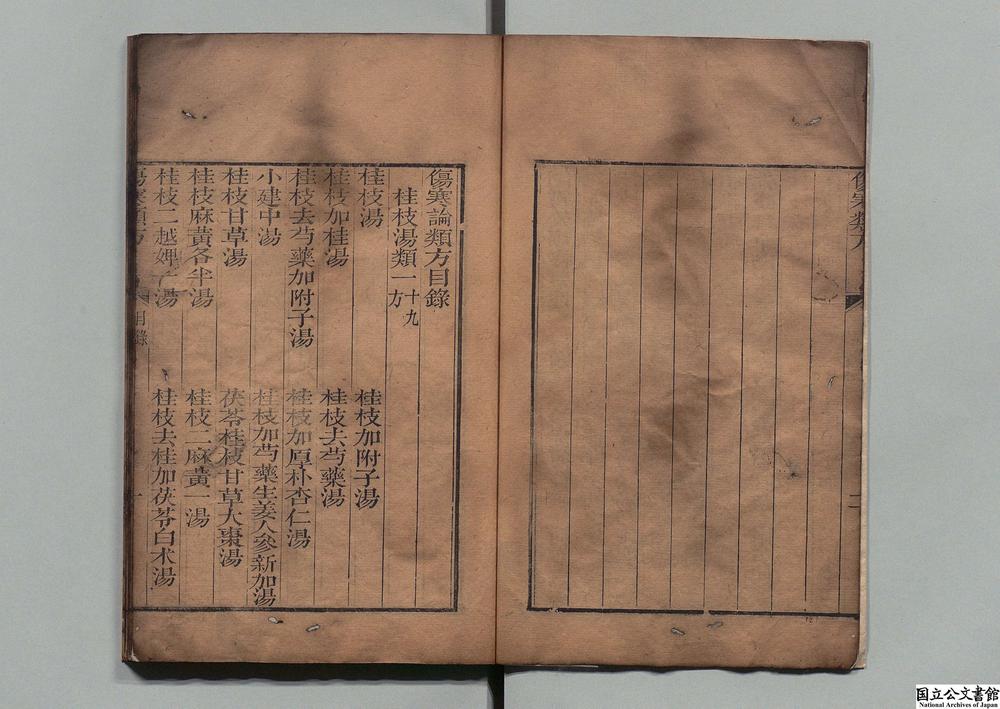 傷寒類方
二
傷寒論類方目錄
桂枝湯類一十九方
桂枝湯
桂枝加附子湯
桂枝加桂湯
桂枝去芍藥湯
桂枝去芍藥加附子湯
桂枝加厚朴杏仁湯
小建中湯
桂枝加芍藥生姜人參新加湯
桂枝甘草湯
茯苓桂枝甘草大棗湯
桂枝麻黃各半湯
桂枝二麻黃一湯
桂枝二越婢一湯
桂枝去桂加茯苓白朮湯
傷寒類方
目錄
一
国立公文書館
National Archives of Japan